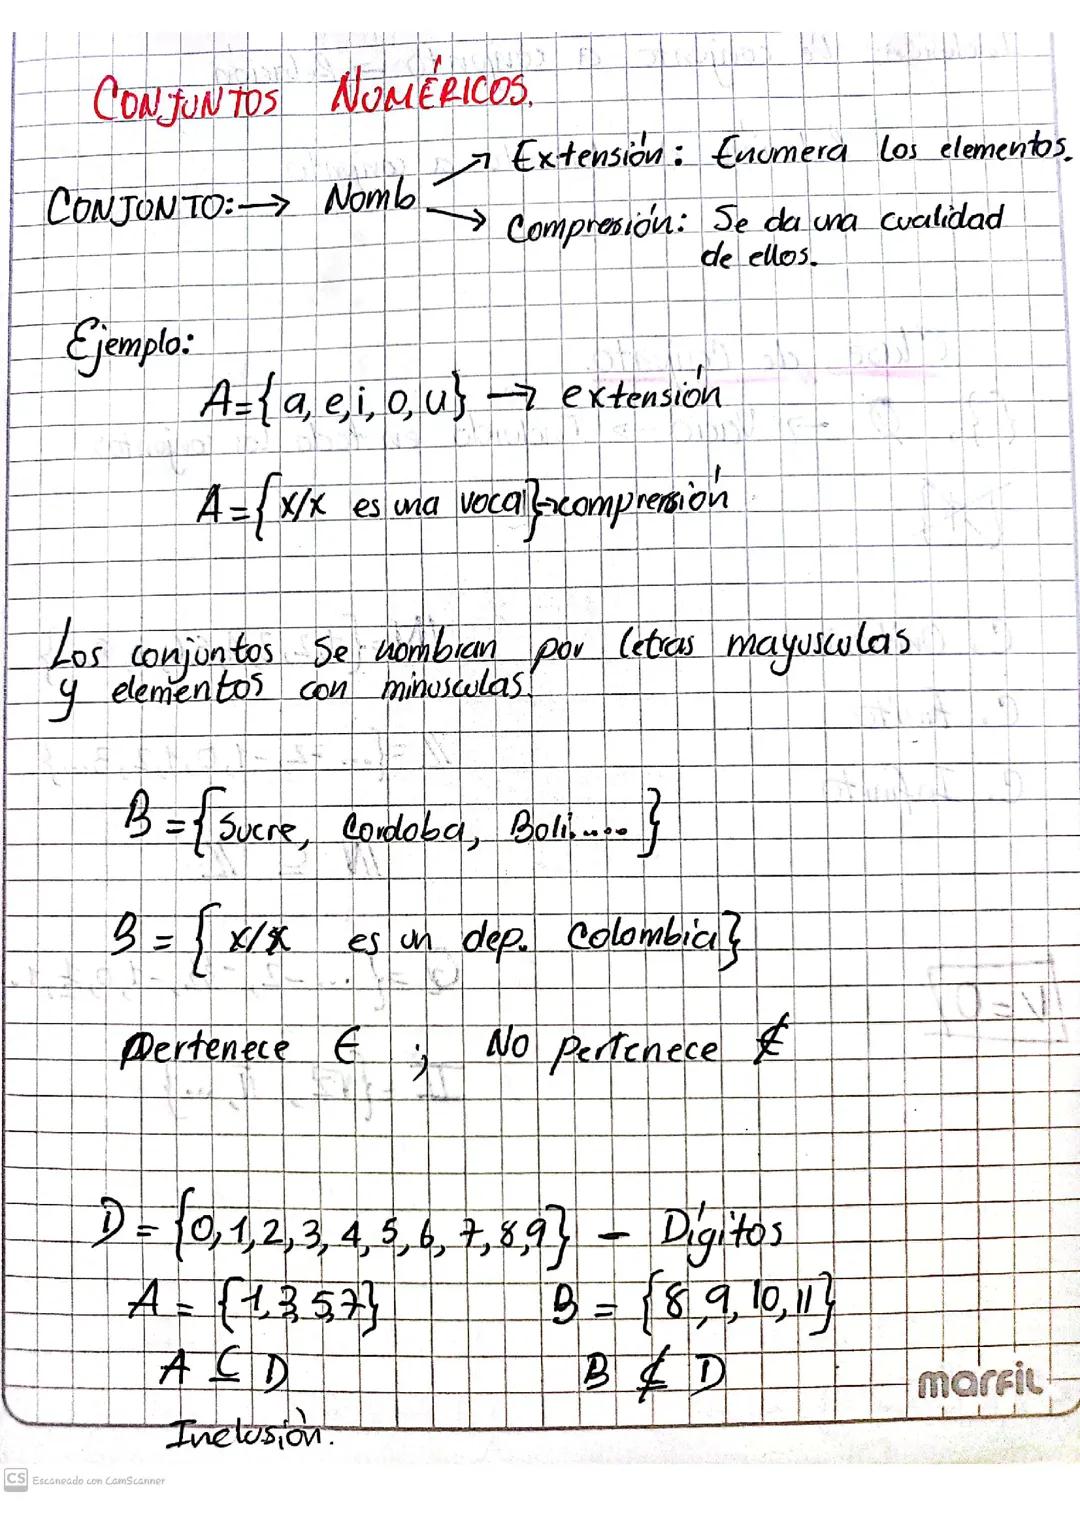 CONJUNTOS NUMÉRICOS.
Extensión: Enumera los elementos.
CONJUNTO:→ Nomb
Compresión: Se da una cualidad
de ellos.
Ejemplo:
A={a,e,i,o,u} → extensión
A={x/x es una vocal}→comprensión
Los conjuntos Se nombran por letras mayusculas
y elementos con minusculas.
B={Sucre, Cordoba, Boli.....}
B={x/x es un dep. Colombia}
Pertenece ∈ ; No pertenece ∉
D={0,1,2,3,4,5,6,7,8,9} – Dígitos
A={1,3,5,7} B={8,9,10,11}
A ⊆ D B ⊄ D
Inclusión.
marfil
CS Escaneado con CamScanner